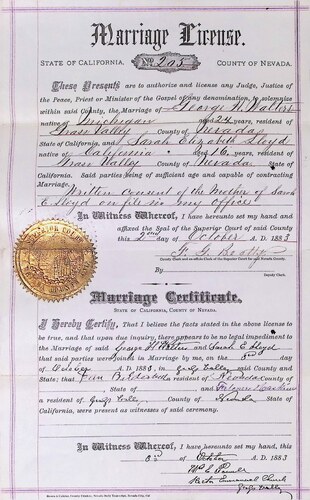 Marriage License.
STATE OF CALIFORNIA, No. 205 COUNTY OF NEVADA.
These Presents are to authorize and license any Judge, Justice of
the Peace, Priest or Minister of the Gospel of any denomination, to solemnize
within said County, the Marriage of George W Walters
native of Michigan aged 24 years, resident of
Grass Valley County of Nevada
State of California, and Sarah Elizabeth Lloyd
native of California aged 16 years, resident of
Grass Valley County of Nevada State of
California. Said parties being of sufficient age and capable of contracting
Marriage.
Written consent of the Mother of Sarah
E Lloyd on file in my office
In Witness Whereof, I have hereunto set my hand and
affixed the Seal of the Superior Court of said County
this 2nd day of October A. D. 1883
F. G.
County Clerk and ex-officio Clerk of the Superior Court for said Nevada County.
By
Deputy Clerk.
Marriage Certificate.
STATE OF CALIFORNIA, COUNTY OF NEVADA.
I Hereby Certify, That I believe the facts stated in the above license
to be true, and that upon due inquiry, there appears to be no legal impediment
to the Marriage of said George W Walters and Sarah E Lloyd
that said parties were joined in Marriage by me, on the 3rd day
of October A. D. 1883, in Grass Valley said County and
State; that a resident of Nevada county
of State of and
a resident of Grass Valley, County of Nevada State of
California, were present as witnesses of said ceremony.
In Witness Whereof, I have hereunto set my hand, this
3rd October A. D. 1883
Emmanuel Church
Grass Valley